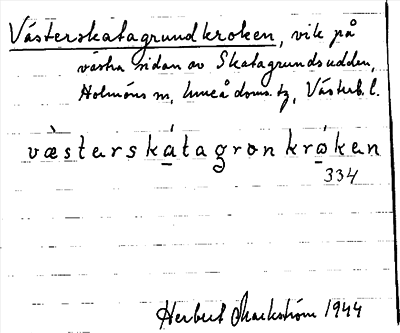 Västerskatagrundkroken, vik på
västra sidan av Skatagrundsudden,
Holmöns sn, Umeå doms. tg, Västerb. l.
væ̀sterská̲tagronkró̲ken
334
Herbert Markström 1944